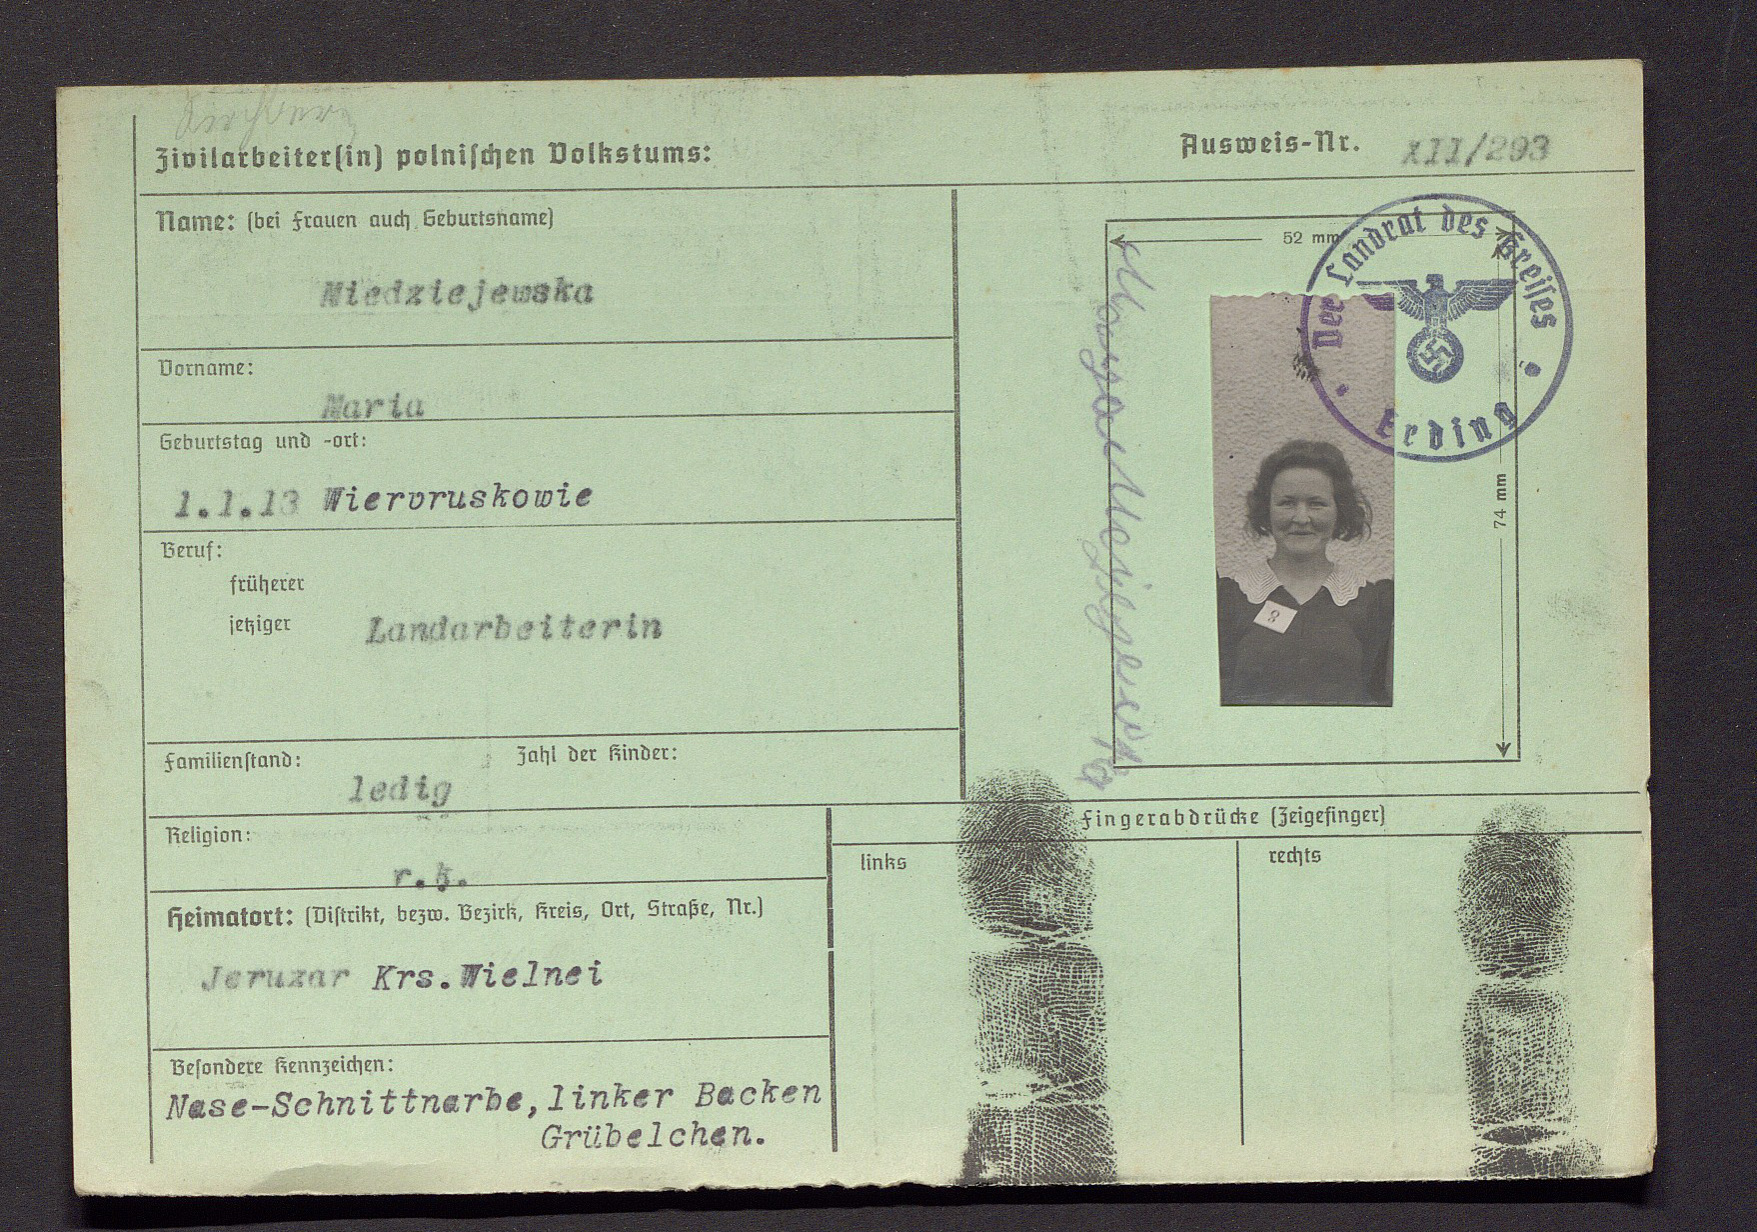 Zivilarbeiter(in) polnischen Volkstums:
Ausweis-Nr. XII/293
Name: (bei Frauen auch Geburtsname)
Niedziejewska
Vorname:
Maria
Geburtstag und -ort:
1.1.13 Wiervruskowie
Beruf:
früherer
jetziger Landarbeiterin
Familienstand:
ledig
Zahl der Kinder:
Religion:
r.k.
Heimatort: (Distrikt, bezw. Bezirk, Kreis, Ort, Straße, Nr.)
Jeruzar Krs.Wielnei
Besondere Kennzeichen:
Nase-Schnittnarbe, linker Backen
Grübelchen.
52 mm
74 mm
Der Landrat des Kreises
Erding
Fingerabdrücke (Zeigefinger)
links
rechts